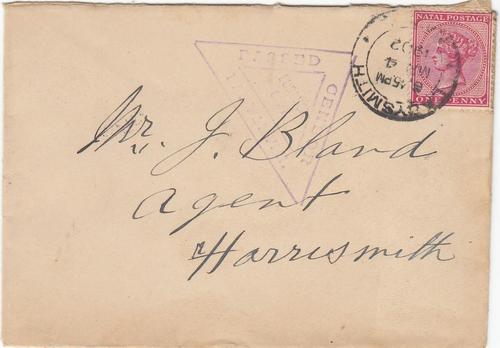 NATAL POSTAGE
ONE PENNY
PASSED
CENSOR
Mr. J. Bland
Agent
Harrismith